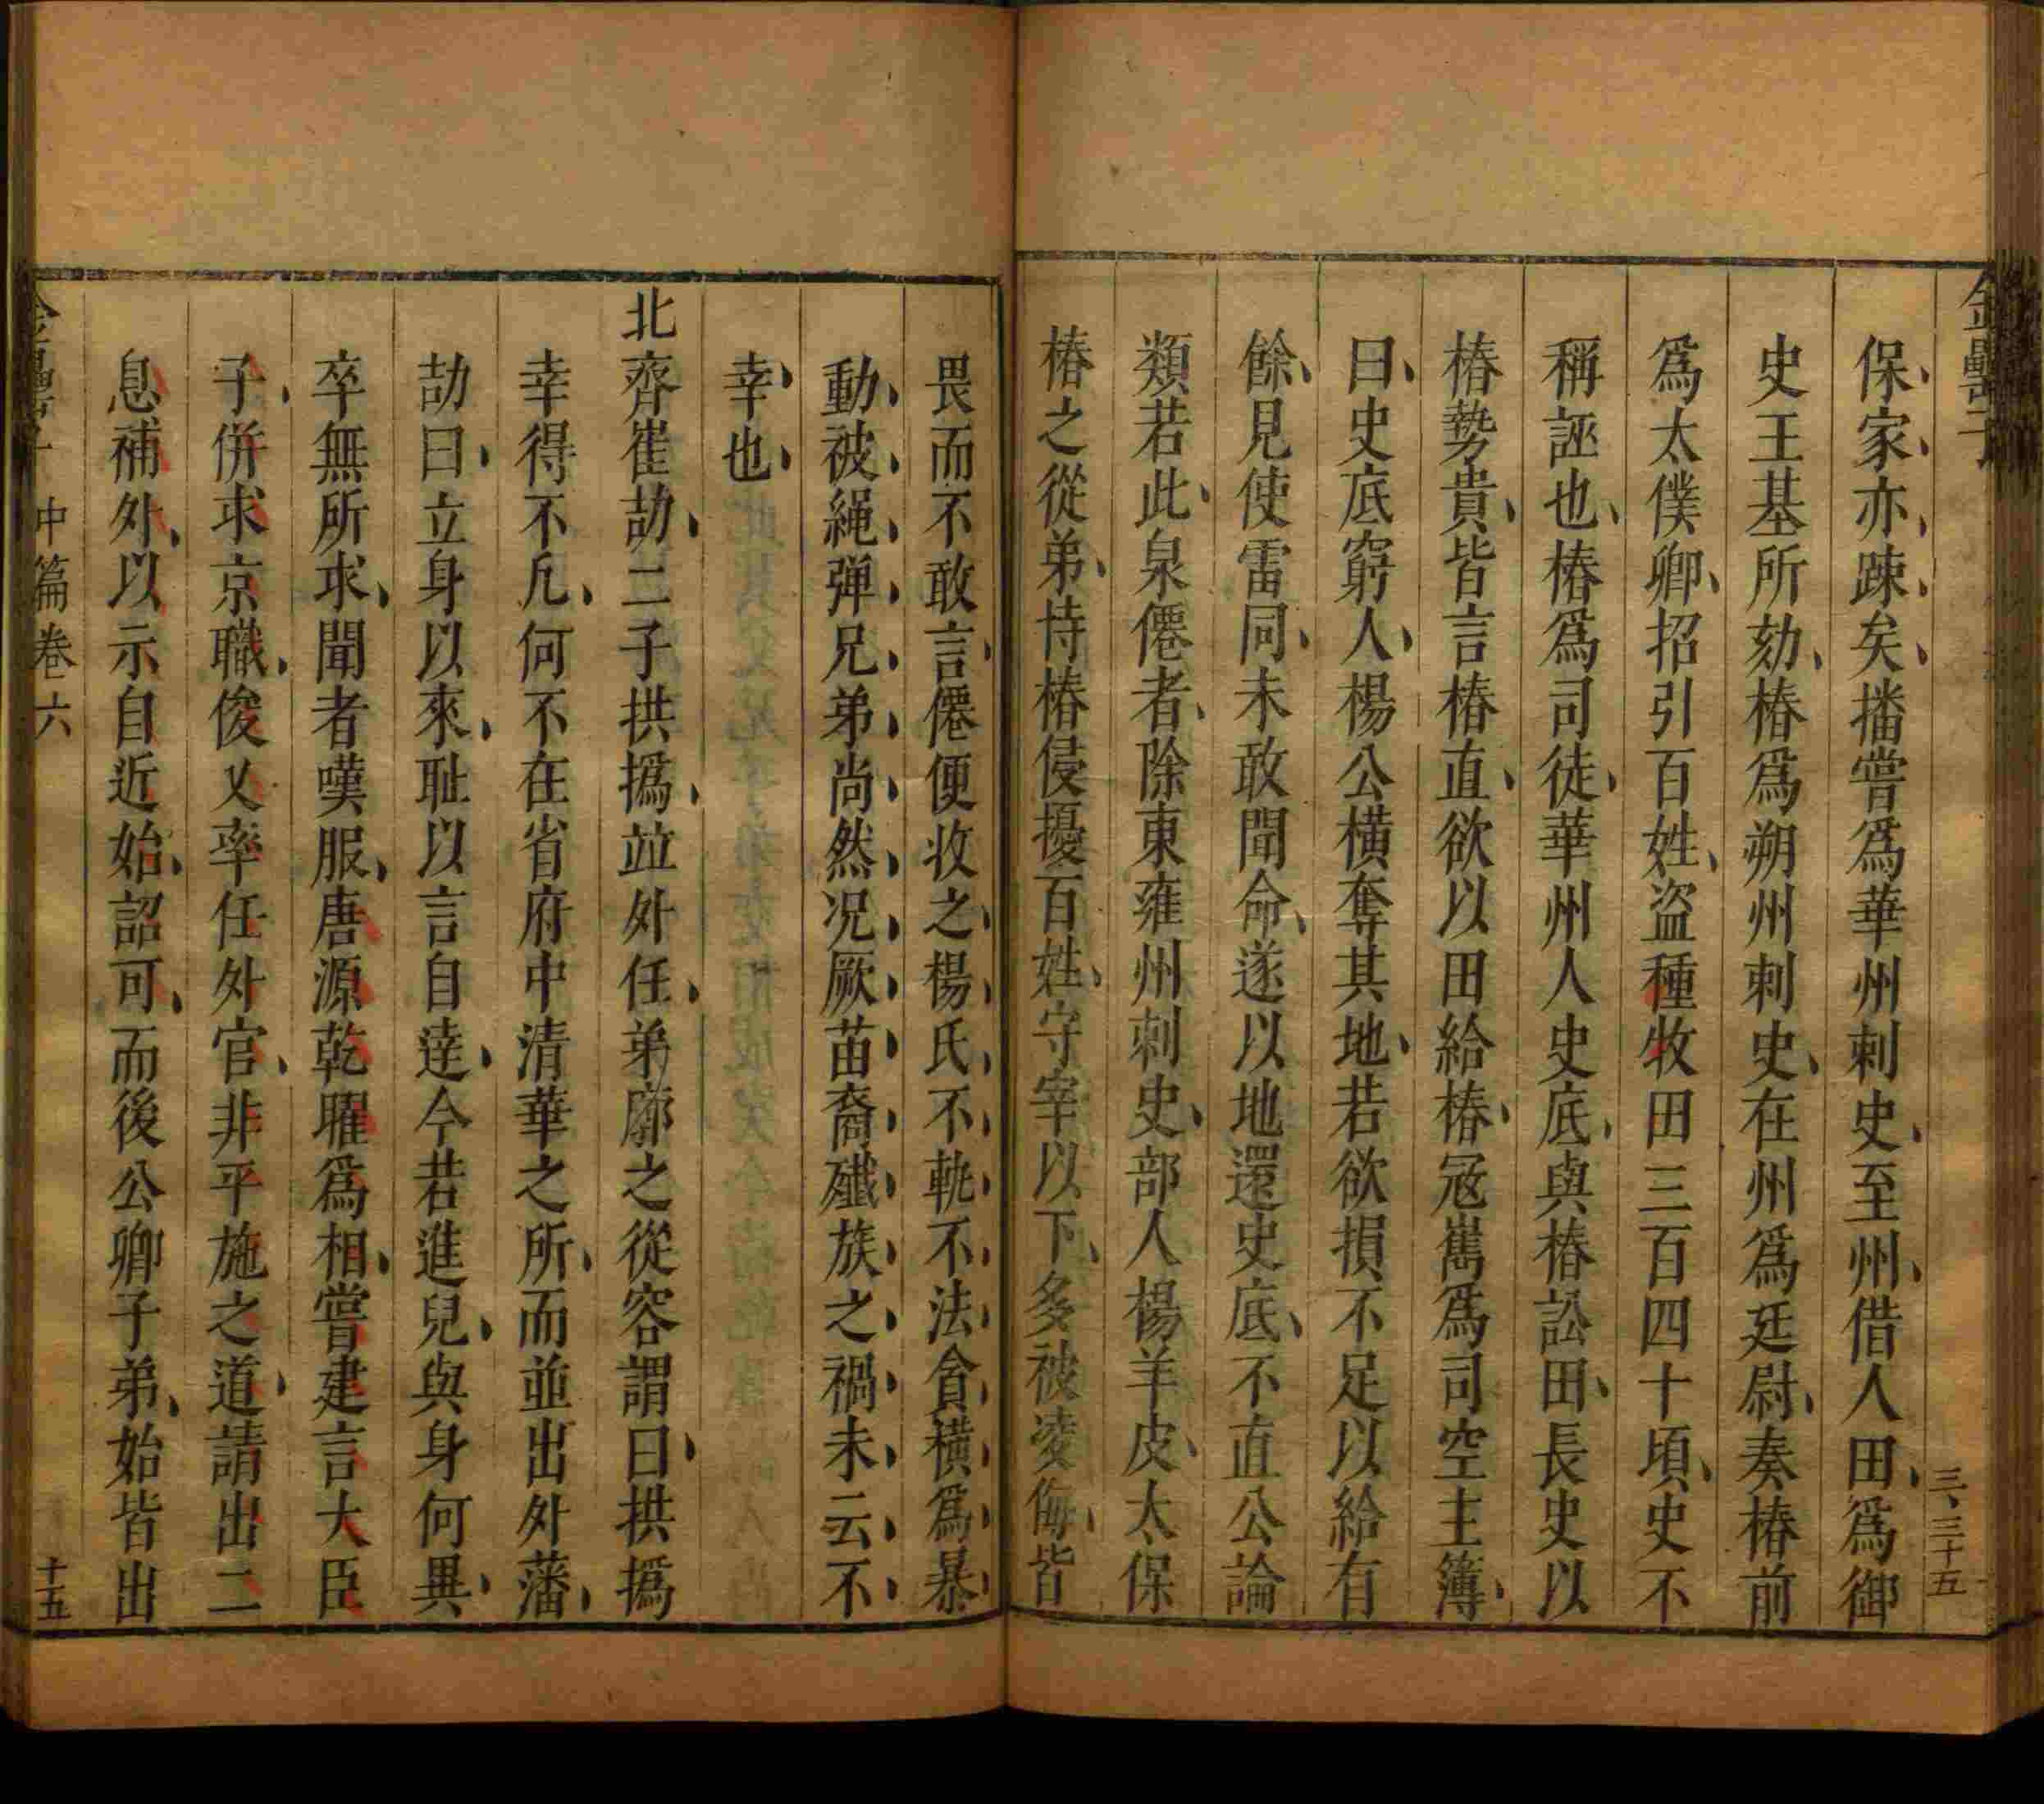 金罍子
三、三十五
保家亦疎矣播嘗爲華州刺史至州借人田爲御
史王基所劾椿爲朔州刺史在州爲廷尉奏椿前
爲太僕卿招引百姓盜種牧田三百四十頃史不
稱誣也椿爲司徒華州人史底與椿訟田長史以
椿勢貴皆言椿直欲以田給椿寇儁爲司空主簿
曰史底窮人楊公橫奪其地若欲損不足以給有
餘見使雷同未敢聞命遂以地還史底不直公論
類若此泉僊者除東雍州刺史部人楊羊皮太保
椿之從弟恃椿侵擾百姓守宰以下多被凌侮皆
畏而不敢言僊便收之楊氏不軌不法貪橫爲暴
動被繩彈兄弟尚然況厥苗裔殲族之禍未云不
幸也
北齊崔劼二子拱撝並外任弟廓之從容謂曰拱撝
幸得不凡何不在省府中清華之所而並出外藩
劼曰立身以來耻以言自達今若進兒與身何異
卒無所求聞者嘆服唐源乾曜爲相嘗建言大臣
子併求京職俊乂率任外官非平施之道請出二
息補外以示自近始詔可而後公卿子弟始皆出
金罍子 中篇卷六 十五